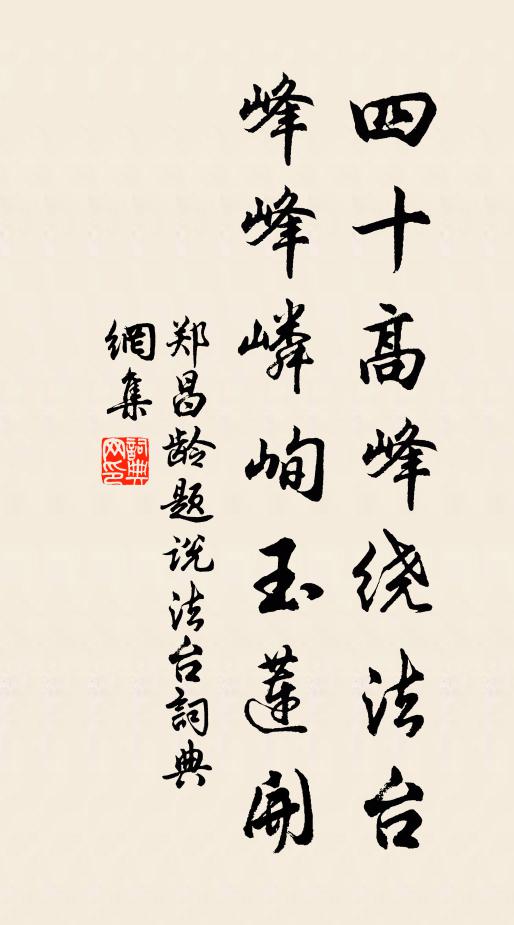 四十高峰绕法台
峰峰嶙峋玉蓮開
郑昌龄题说法台詞典
網集
詞典网印